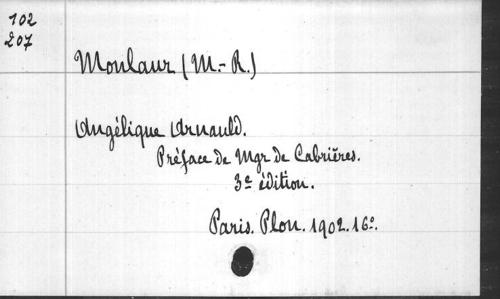 102
207
Monlaur (M.-R.)
Angélique Arnauld.
Préface de Mgr de Cabrières.
3e édition.
Paris. Plon. 1902. 16o.